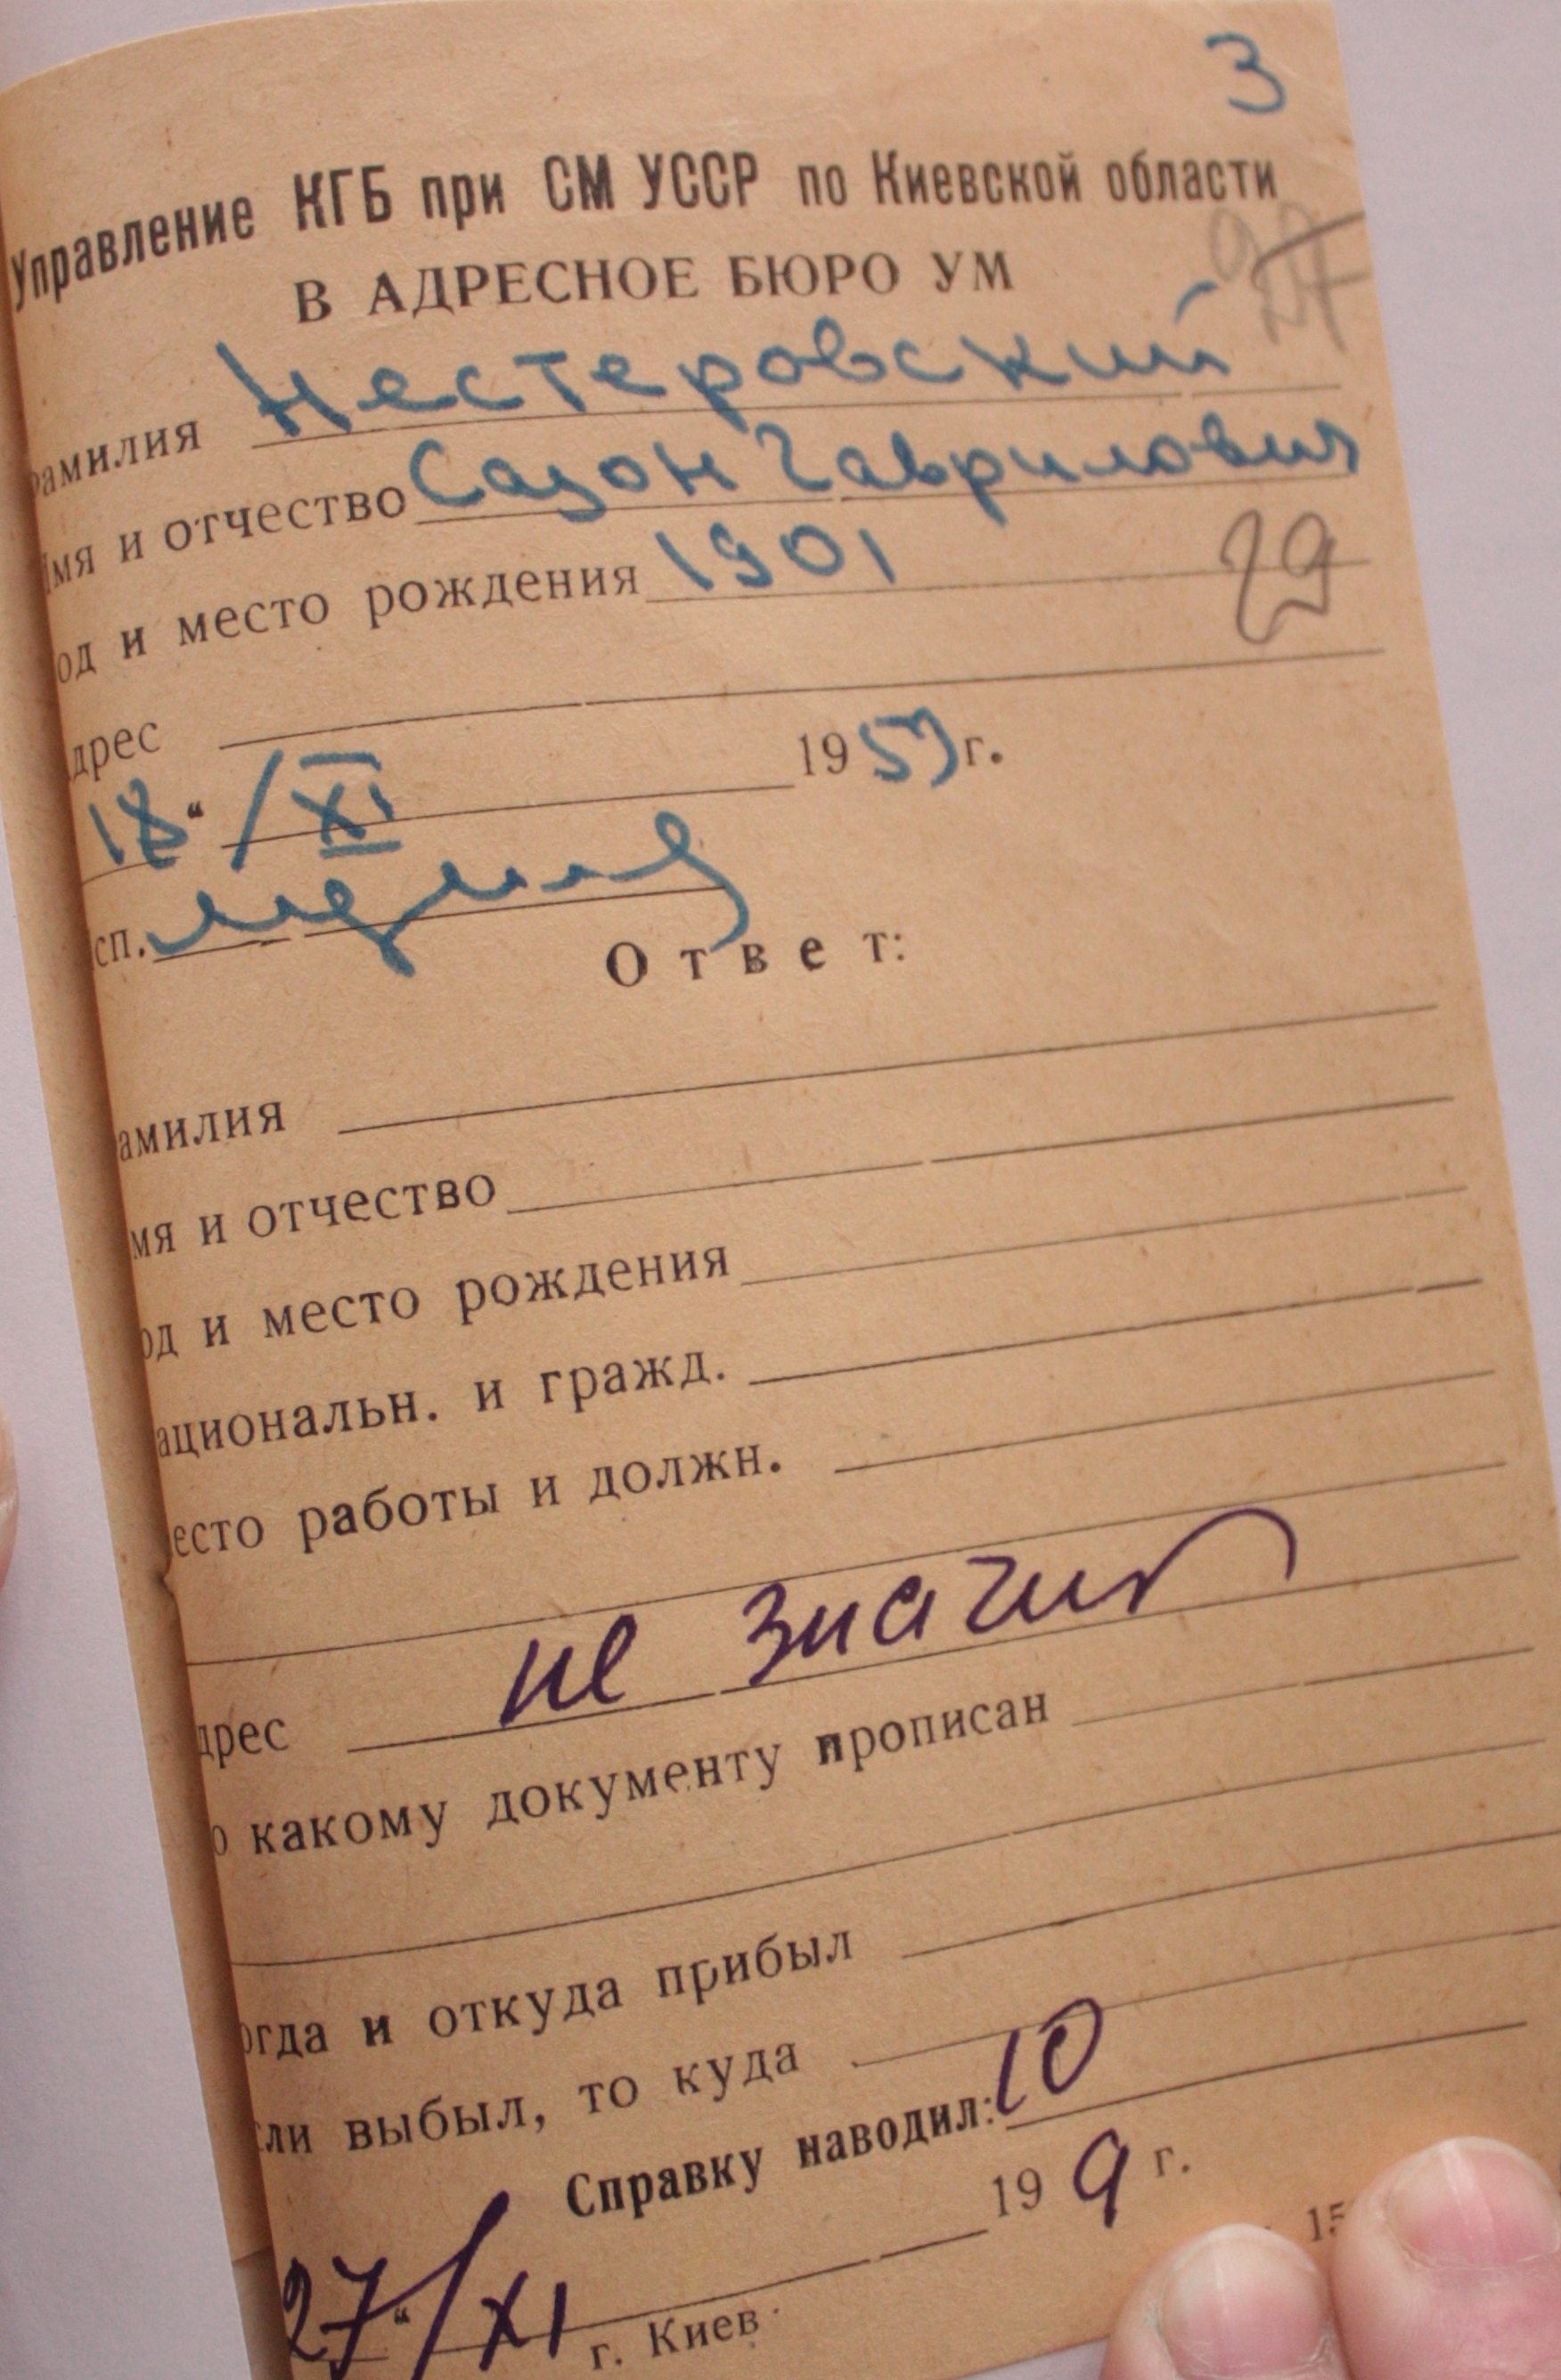 3
Управление КГБ при СМ УССР по Киевской области
В АДРЕСНОЕ БЮРО УМ
амилия Нестеровский
Имя и отчество Сазон Гаврилович
од и место рождения 1901
29
дрес
18" /XI 1959 г.
сп.
Ответ:
амилия
мя и отчество
од и место рождения
ациональн. и гражд.
есто работы и должн.
дрес не значит
о какому документу прописан
огда и откуда прибыл
сли выбыл, то куда
Справку наводил: 10
27" /XI 19 9 г.
г. Киев